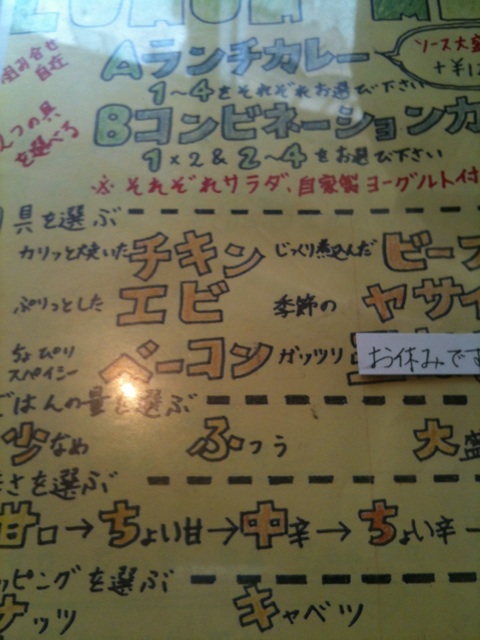 LUNCH ME
組み合せ
自在
Aランチカレー
ソース大盛
+¥1
1〜4をそれぞれお選び下さい
2つの具
を選べる
Bコンビネーションカ
1×2&2〜4をお選び下さい
※それぞれサラダ、自家製ヨーグルト付
具を選ぶ
カリッと焼いたチキン じっくり煮込んだビーフ
ぷりっとしたエビ 季節のヤサイ
ちょぴり
スペイシー
ベーコン ガッツリ
お休みです
ごはんの量を選ぶ
少なめ ふつう 大盛
辛さを選ぶ
甘口→ちょい甘→中辛→ちょい辛
ッピングを選ぶ
ナッツ キャベツ